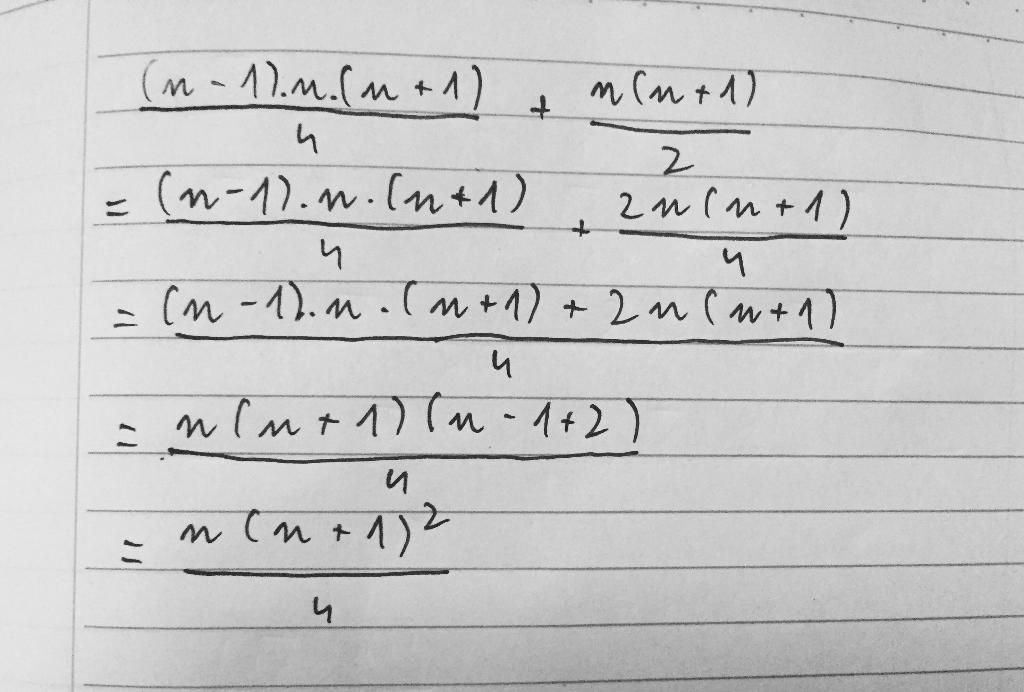 (n - 1).n.(n + 1)/4 + n(n+1)/2
= (n-1).n.(n+1)/4 + 2n(n+1)/4
= (n-1).n.(n+1) + 2n(n+1)/4
= n(n+1)(n-1+2)/4
= n(n+1)²/4